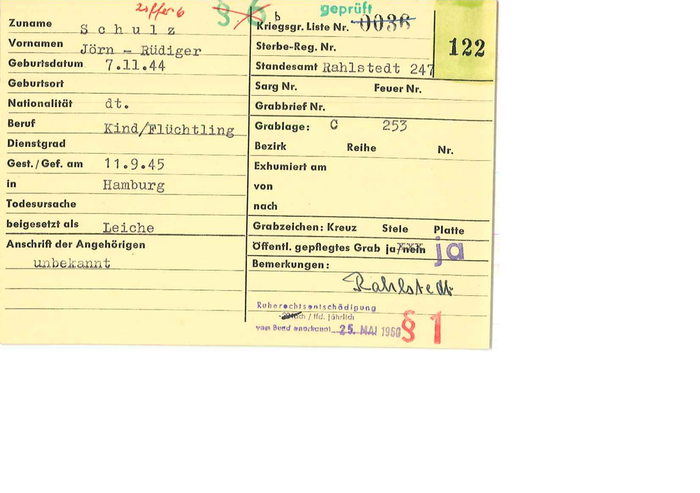 Ziffer 6 § 6 geprüft
Zuname S c h u l z
Vornamen Jörn - Rüdiger
Geburtsdatum 7.11.44
Geburtsort
Nationalität dt.
Beruf Kind/Flüchtling
Dienstgrad
Gest./Gef. am 11.9.45
in Hamburg
Todesursache
beigesetzt als Leiche
Anschrift der Angehörigen
unbekannt
b
Kriegsgr. Liste Nr. 0036
Sterbe-Reg. Nr.
Standesamt Rahlstedt 247
122
Sarg Nr. Feuer Nr.
Grabbrief Nr.
Grablage: C 253
Bezirk Reihe Nr.
Exhumiert am
von
nach
Grabzeichen: Kreuz Stele Platte
Öffentl. gepflegtes Grab ja/nein ja
Bemerkungen:
Rahlstedt
Ruherechtsentschädigung
/ lfd. jährlich
vom Bund anerkannt 25. MAI 1966
§ 1